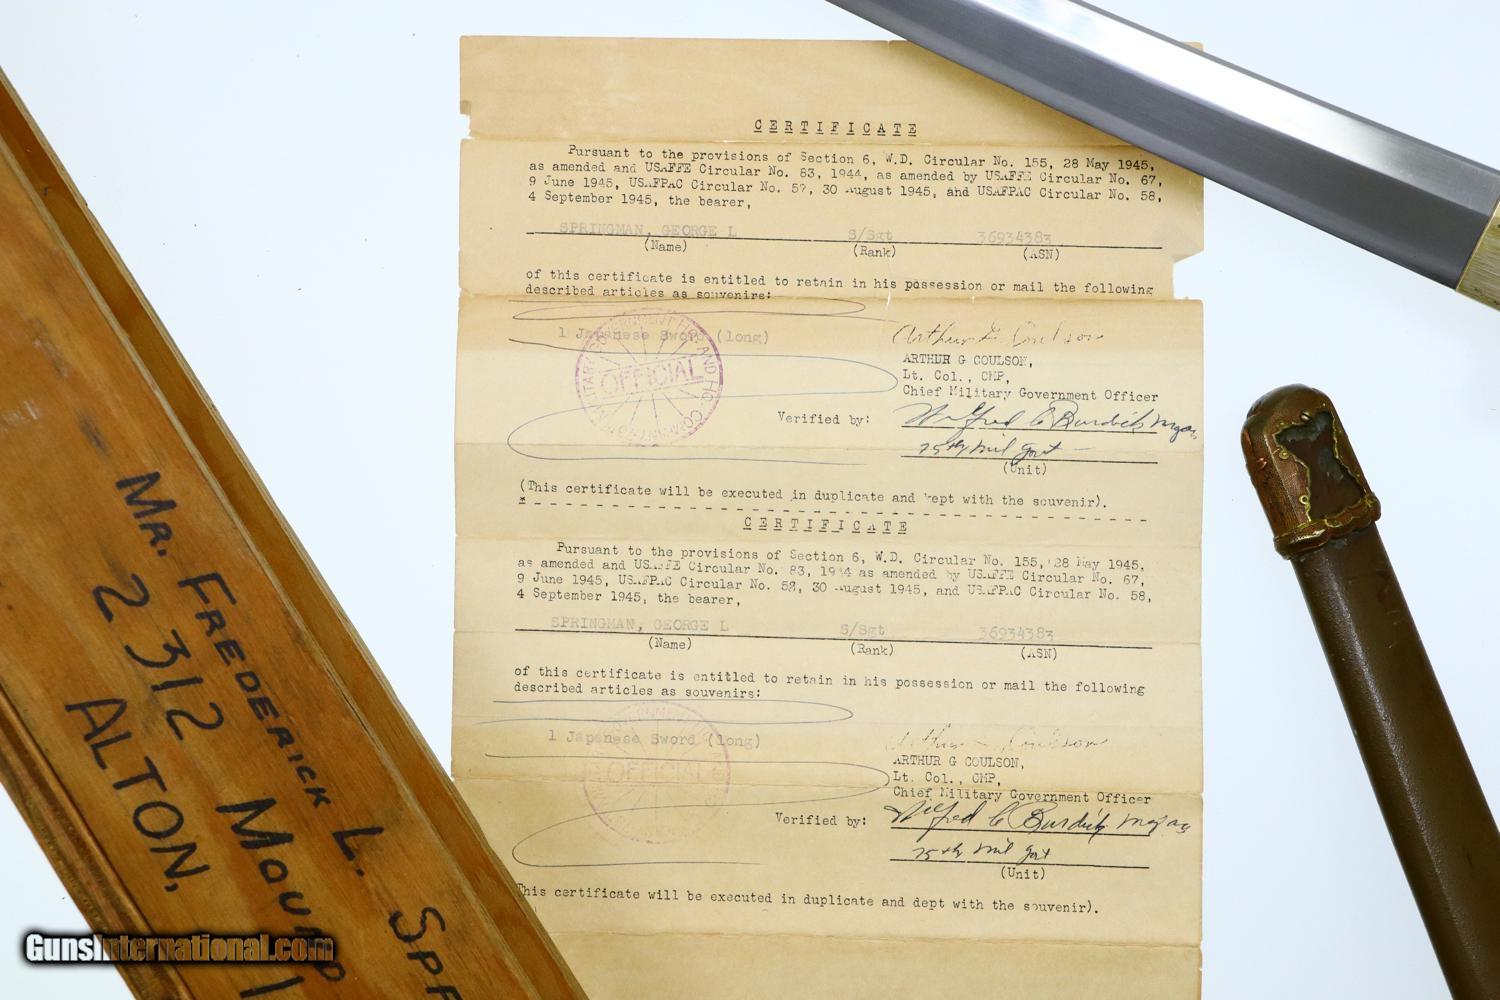 CERTIFICATE
Pursuant to the provisions of Section 6, W.D. Circular No. 155, 28 May 1945,
as amended and USAFFE Circular No. 83, 1944, as amended by USAFFE Circular No. 67,
9 June 1945, USAFPAC Circular No. 52, 30 August 1945, and USAFPAC Circular No. 58,
4 September 1945, the bearer,
SPRINGMAN, GEORGE L S/Sgt 36934383
(Name) (Rank) (ASN)
of this certificate is entitled to retain in his possession or mail the following
described articles as souvenirs:
1 Japanese Sword (long)
OFFICIAL
MILITARY GOVERNMENT HQ. AND HQ. COMPANY
Arthur G Coulson
ARTHUR G COULSON,
Lt. Col., CMP,
Chief Military Government Officer
Verified by: Wilfred C Burdick Major
75th Mil Govt
(Unit)
(This certificate will be executed in duplicate and kept with the souvenir).
CERTIFICATE
Pursuant to the provisions of Section 6, W.D. Circular No. 155, 28 May 1945,
as amended and USAFFE Circular No. 83, 1944 as amended by USAFFE Circular No. 67,
9 June 1945, USAFPAC Circular No. 52, 30 August 1945, and USAFPAC Circular No. 58,
4 September 1945, the bearer,
SPRINGMAN, GEORGE L S/Sgt 36934383
(Name) (Rank) (ASN)
of this certificate is entitled to retain in his possession or mail the following
described articles as souvenirs:
1 Japanese Sword (long)
OFFICIAL
Arthur G Coulson
ARTHUR G COULSON,
Lt. Col., CMP,
Chief Military Government Officer
Verified by: Wilfred C Burdick Major
75th Mil Govt
(Unit)
This certificate will be executed in duplicate and dept with the souvenir).
MR. FREDERICK L. SPR
2312 MOUND
ALTON, I
GunsInternational.com